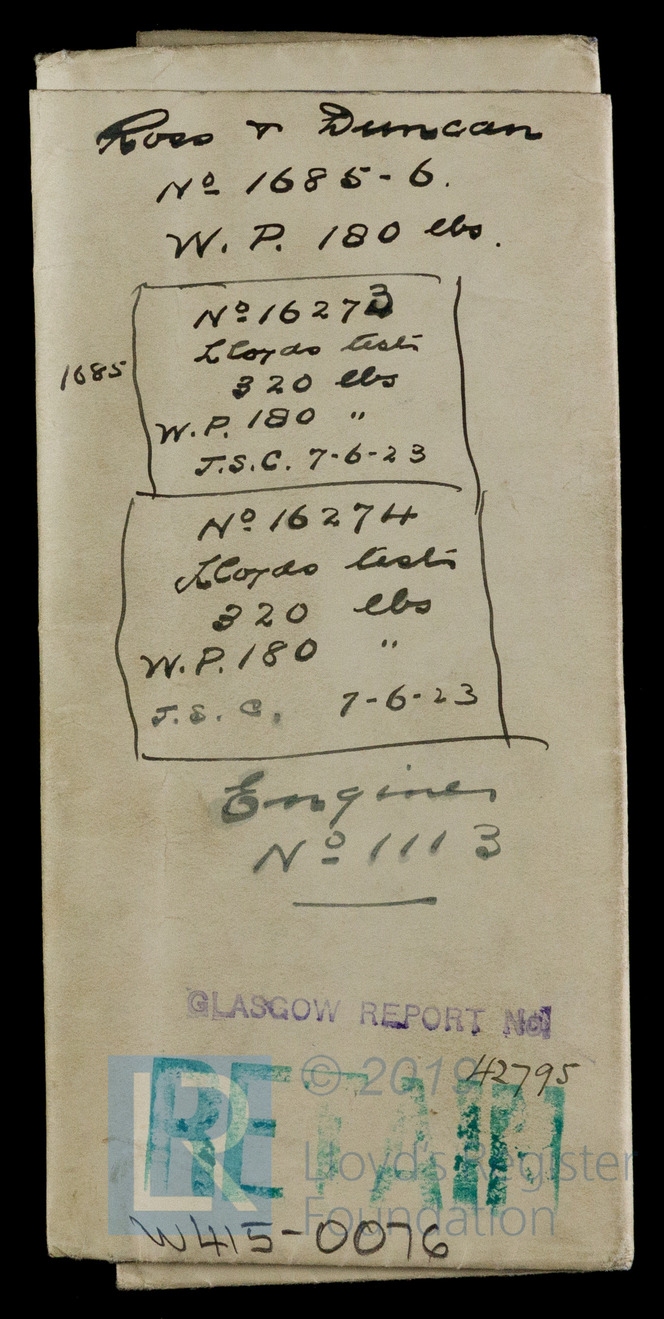 Ross & Duncan
Nº 1685-6.
W. P. 180 lbs.
Nº 16273
Lloyds tests
320 lbs
1685
W.P. 180 "
J.S.C. 7-6-23
Nº 16274
Lloyds tests
320 lbs
W.P. 180 "
J.S.C. 7-6-23
Engines
Nº 1113
GLASGOW REPORT No
42795
RETAIN
© 2019
Lloyd's Register
Foundation
LR
W415-0076